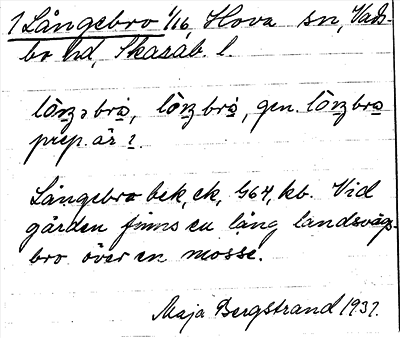 1 Långebro 1/16, Hova sn, Vads-
bo hd, Skarab. l.
löŋɔbrò, löŋbrò, gen. löŋbrò
prep. är ?.
Långebro bek, ek, G64, kb. Vid
gården finns en lång landsvägs-
bro över en mosse.
Maja Bergstrand 1937.